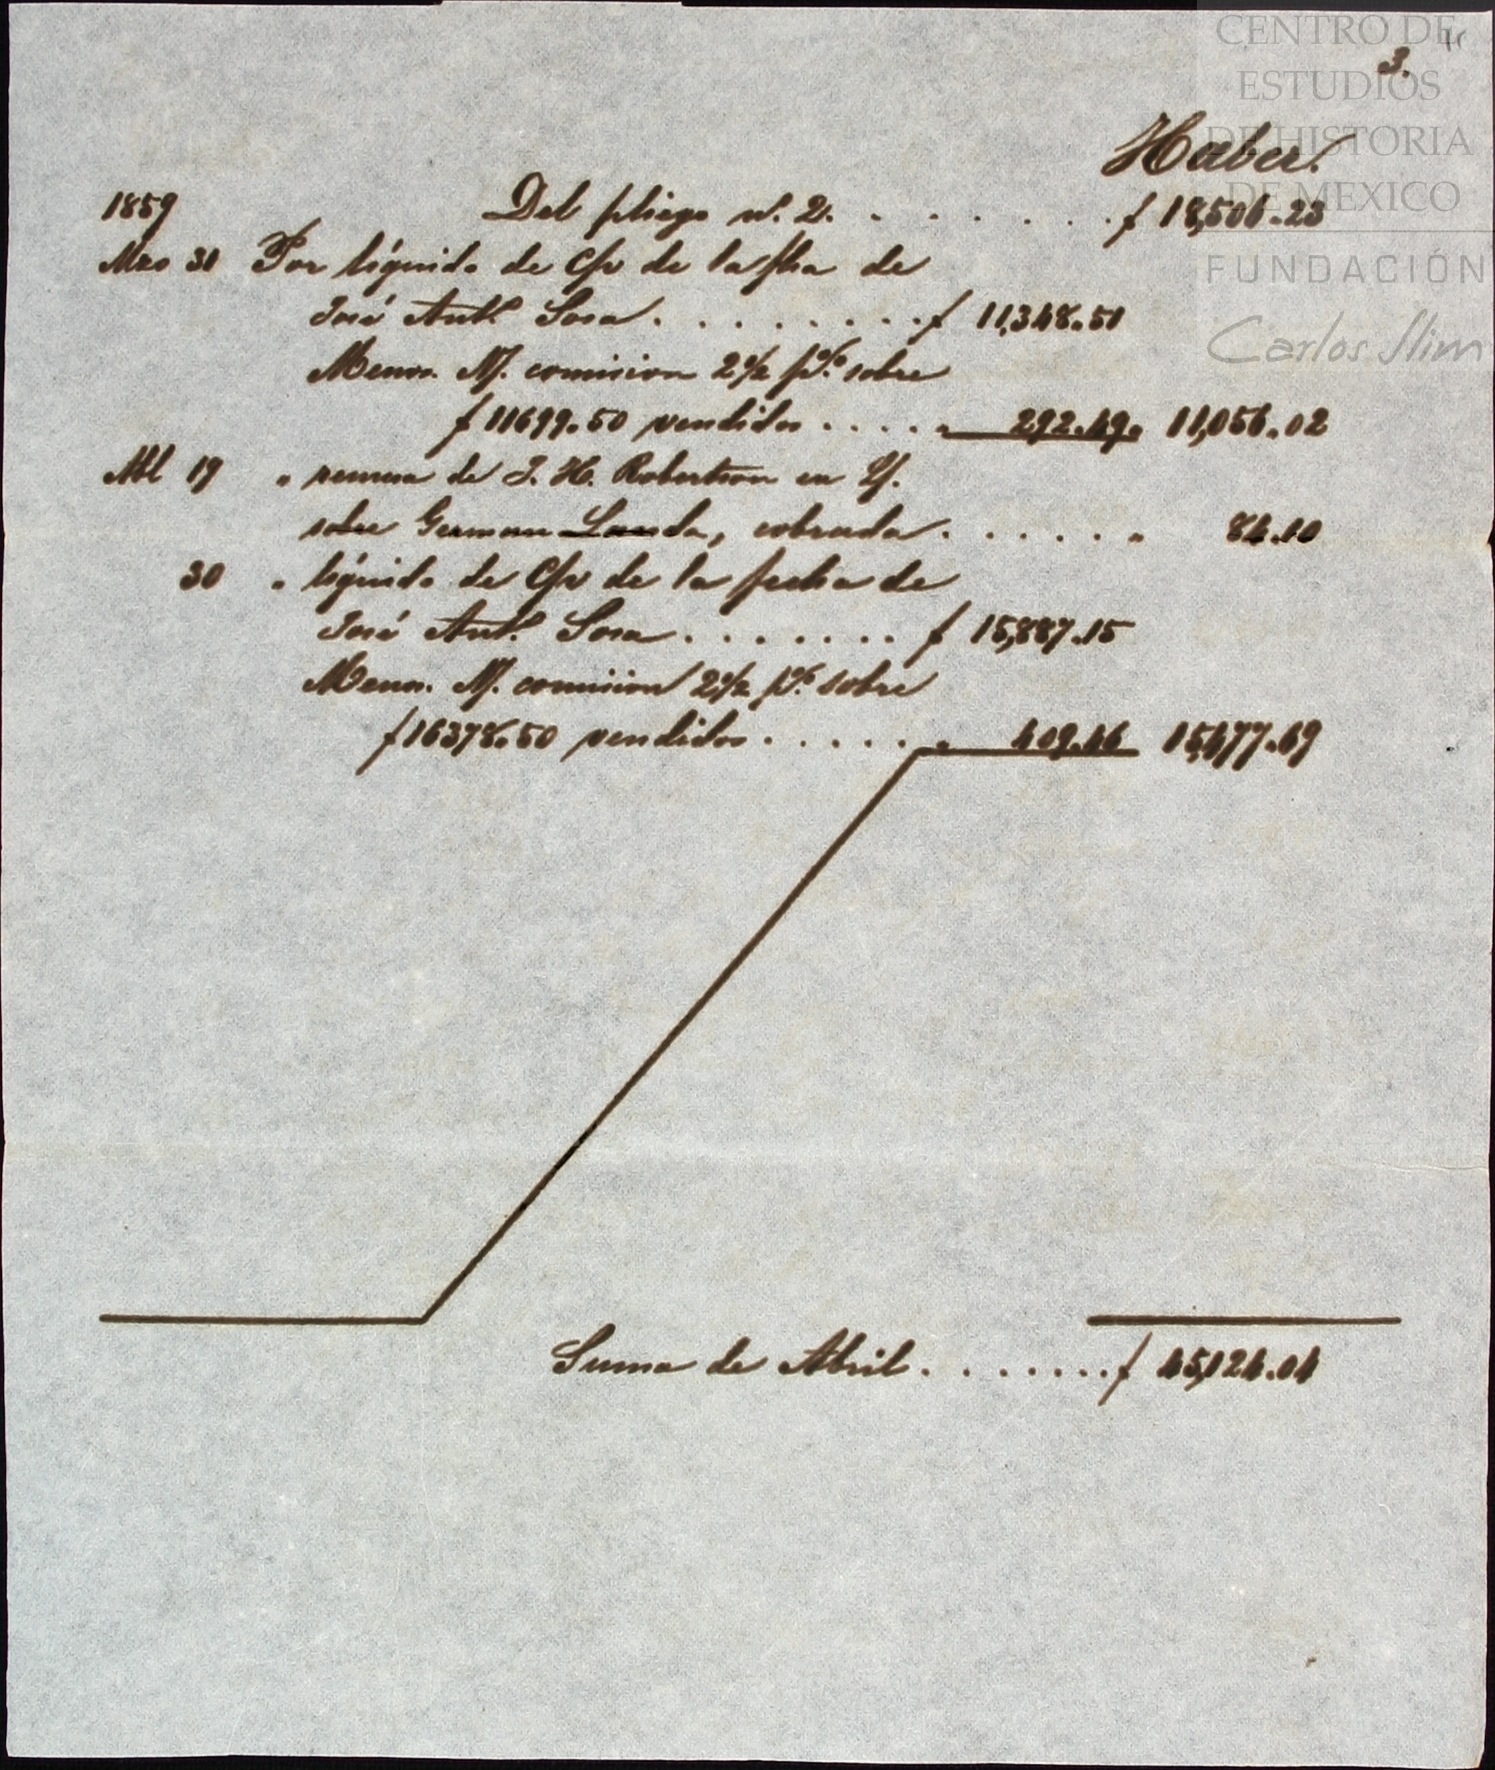 CENTRO DE
ESTUDIOS
DE HISTORIA
DE MEXICO
FUNDACIÓN
Carlos Slim
3.
Haber.
1859 Del pliego nº. 2. . . . . . . . $ 18,506.23
Mzo 31 Por líquido de C/v de la fha de
José Antº. Sosa . . . . . . . . . $ 11,348.51
Menos. N/. comision 2 1/2 p%. sobre
$ 11699.50 vendidos . . . . . 292.49. 11,056.02
Abl 19 " remesa de J. H. Robertson en L/.
sobre German Landa, cobrada . . . . . . " 84.10
30 " líquido de C/v de la fecha de
José Antº. Sosa . . . . . . . $ 15,887.15
Menos. N/. comision 2 1/2 p%. sobre
$ 16378.50 vendidos . . . . . . " 409.46 15,477.69
Suma de Abril . . . . . . . $ 45,124.04